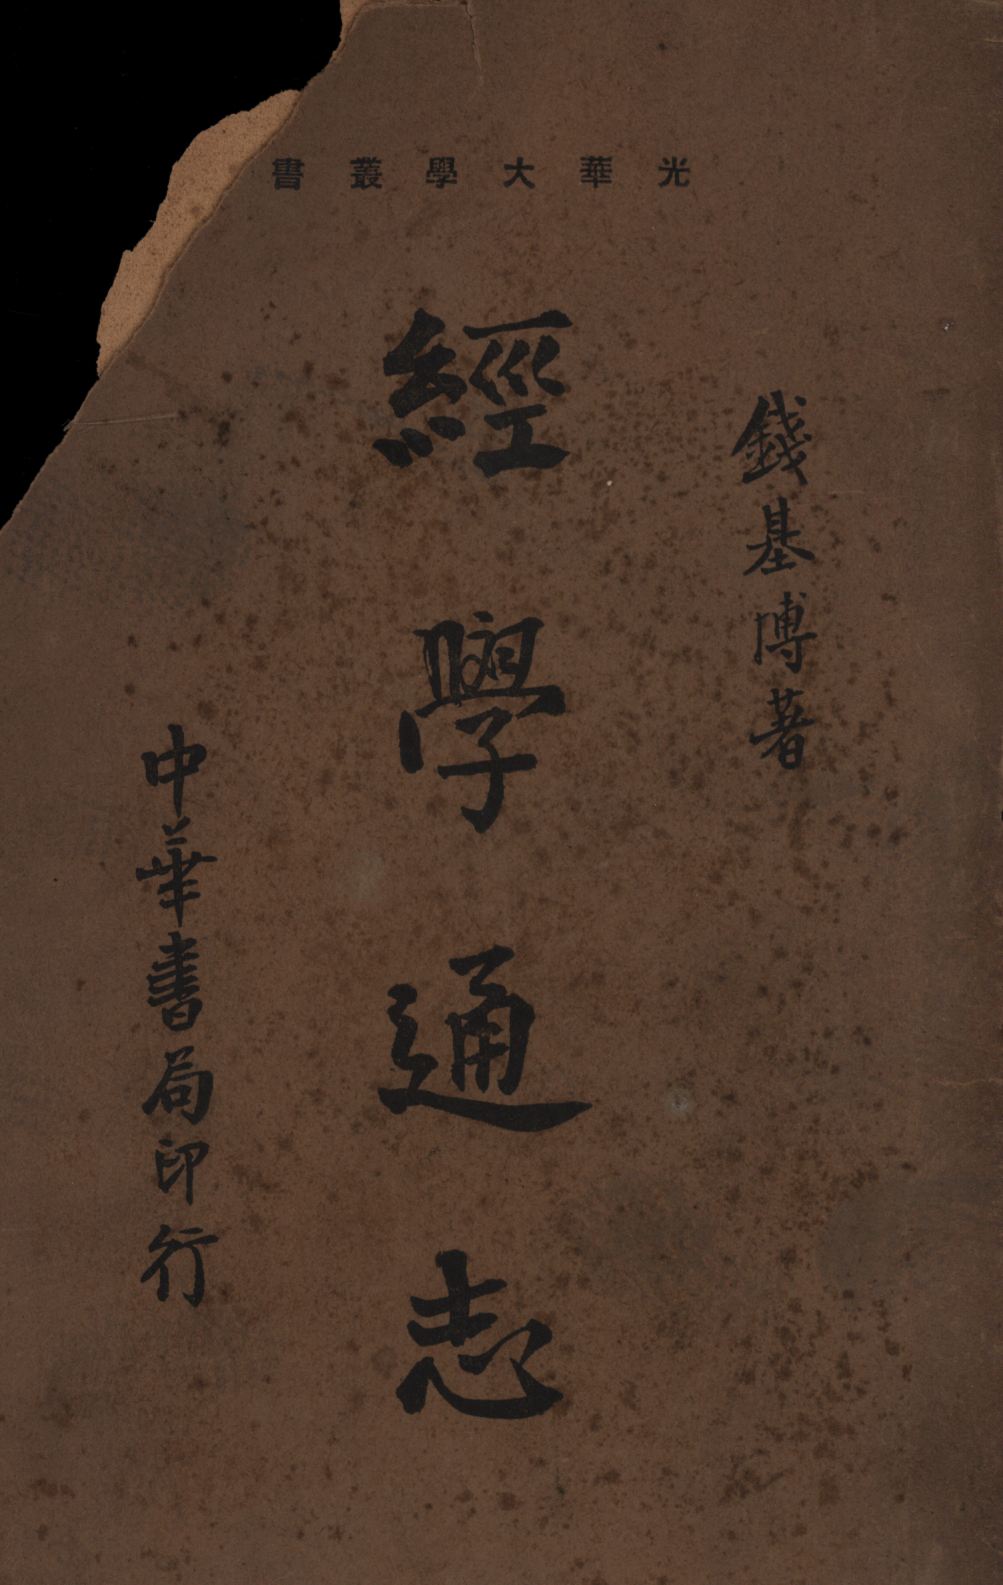 光華大學叢書
錢基博著
經學通志
中華書局印行